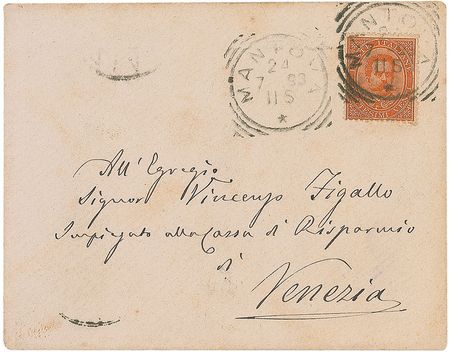 MANTOVA
24
7 83
11 S
*
MANTOVA
11 S
*
All' Egregio
Signor Vincenzo Figallo
Impiegato alla Cassa di Risparmio
di
Venezia